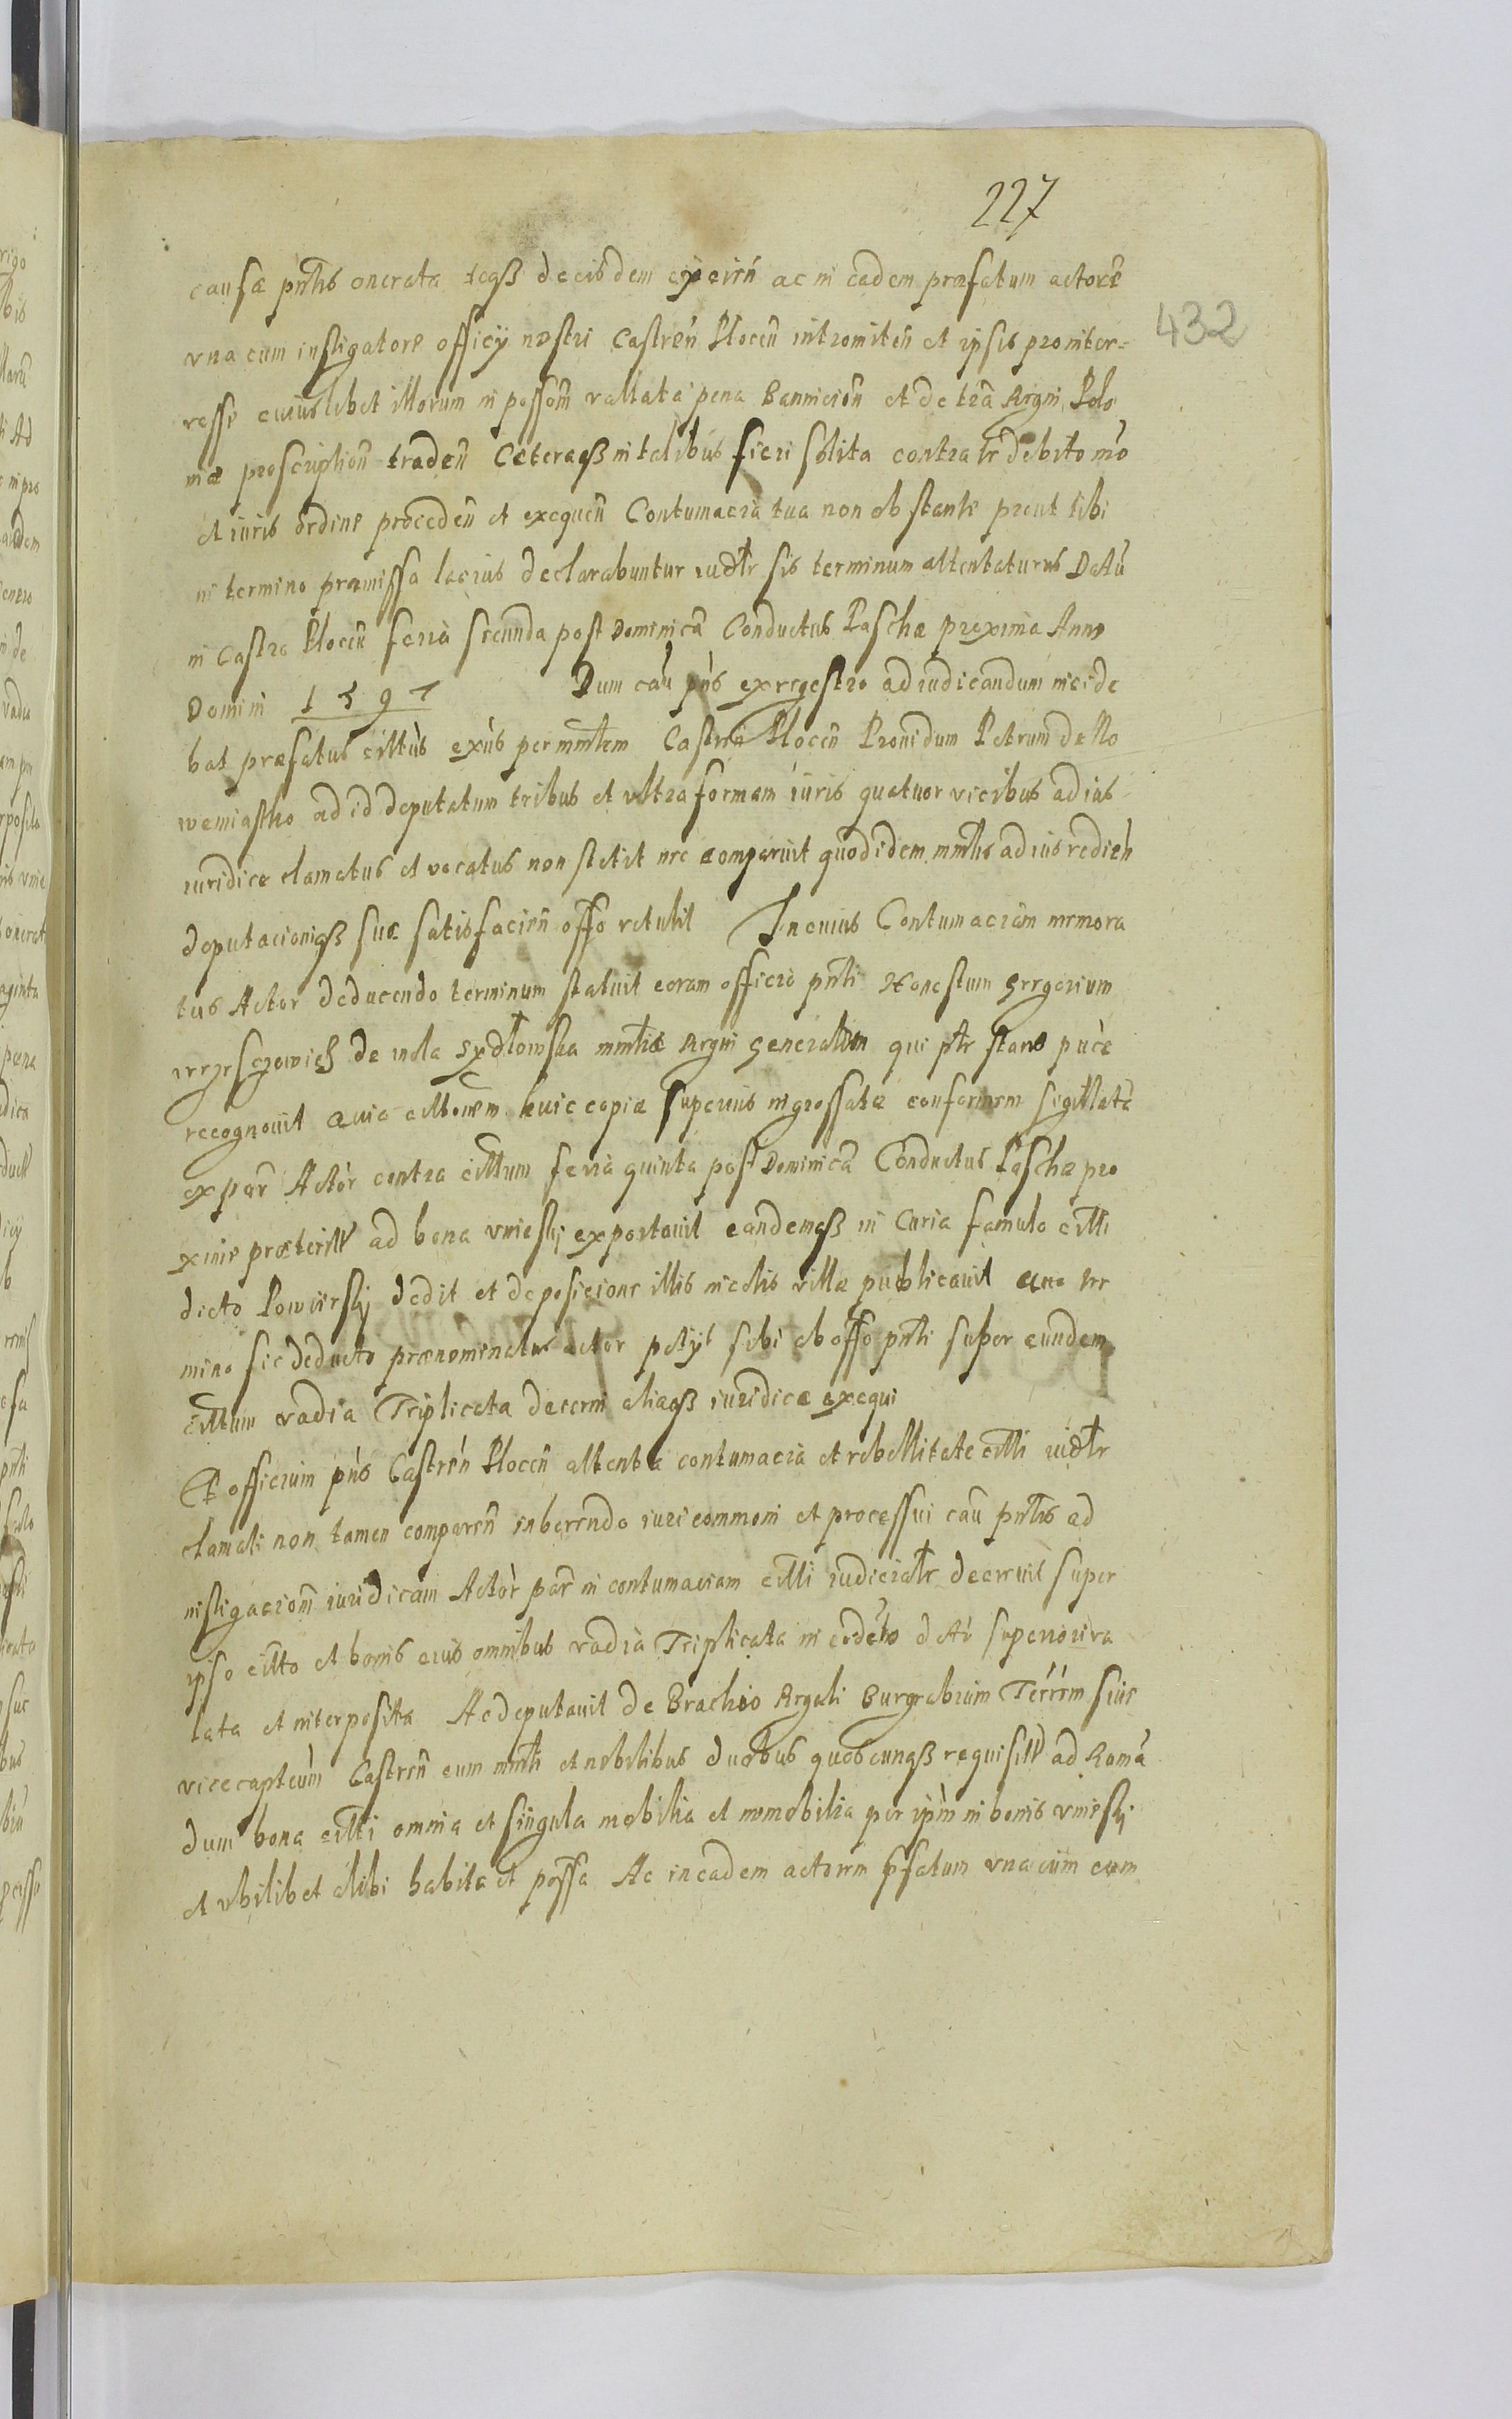 227
causæ pntis onerata teqß de eisdem eijcien ac in eadem præfatum actore
432
vna cum instigatore officij nostri Castren Plocen intromitten et ipsis pro inter=
resse cuiuslibet illorum in possom vallata pena Bannicion et de tra Regni Polo
niæ proscription traden Cæteraqß in talibus fieri solita contra te debito mo
et iuris ordine proceden et exequen Contumacia tua non obstante prout tibi
in termino præmissa lacius declarabuntur iudltr sis terminum attentaturus Datu
in Castro Plocen feria secunda post Dominica Conductus Paschæ proxima Anno
Domini 1597 Dum cau pns ex regestro ad iudicandum incide
bat præfatus cittus exus per mntem Castren Plocen Prouidum Petrum de No
wemiastho ad id deputatum tribus et vltra formam iuris quatuor vicibus ad ius
iuridice clamatus et vocatus non stetit nec comparuit quod idem mntis ad ius redien
deputacioniqß suæ satisfacien offo retulit In cuius Contumaciam memora
tus Actor deducendo terminum statuit coram officio pnti Honestum Gregorium
de vola mntiæ Regni generalem qui ptr stans puce
recognouit Quia huic copiæ superius ingrossatæ conformem sigillata
ex par Actor contra cittum feria quinta post Dominica Conductus Paschæ pro
xime præterit ad bona vniesky exportauit eandemqß in Curia famulo citti
dicto Powiersky dedit et de posicione illis incolis villæ publicauit Quo ter
mino sic deducto prænominatus actor petijt sibi ab offo pnti super eundem
cittum vadia Triplicata decerni aliaqß iuridice exequi
Et officium pns Castren Plocen attenta contumacia et rebellitate citti iudltr
clamati non tamen comparen inherendo iuri commoni et processui cau pntis ad
instigaciom iuridicam Actor par in contumaciam citti iudicialtr decreuit super
ipso citto et bonis eius omnibus vadia Triplicata in superiori va
lata et interposita Ac deputauit de Brachio Regali Burgrabium Terrem siue
vicecapteum Castren cum mnti et nobilibus duobus quoscunqß requisitt ad Roma
dum bona citti omnia et singula mobilia et immobilia per ipm in bonis vniesky
et vbilibet alibi habita et possa Ac in eadem actorem pfatum vna cum eum